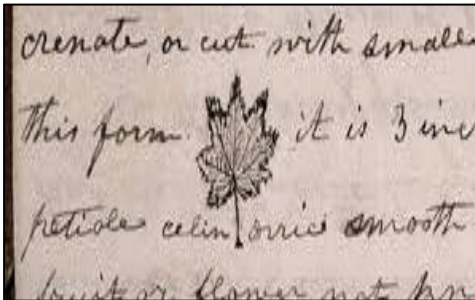 crenate, or cut with small
this form. it is 3 inc
petiole celindrric smooth
fruit or flower not kn